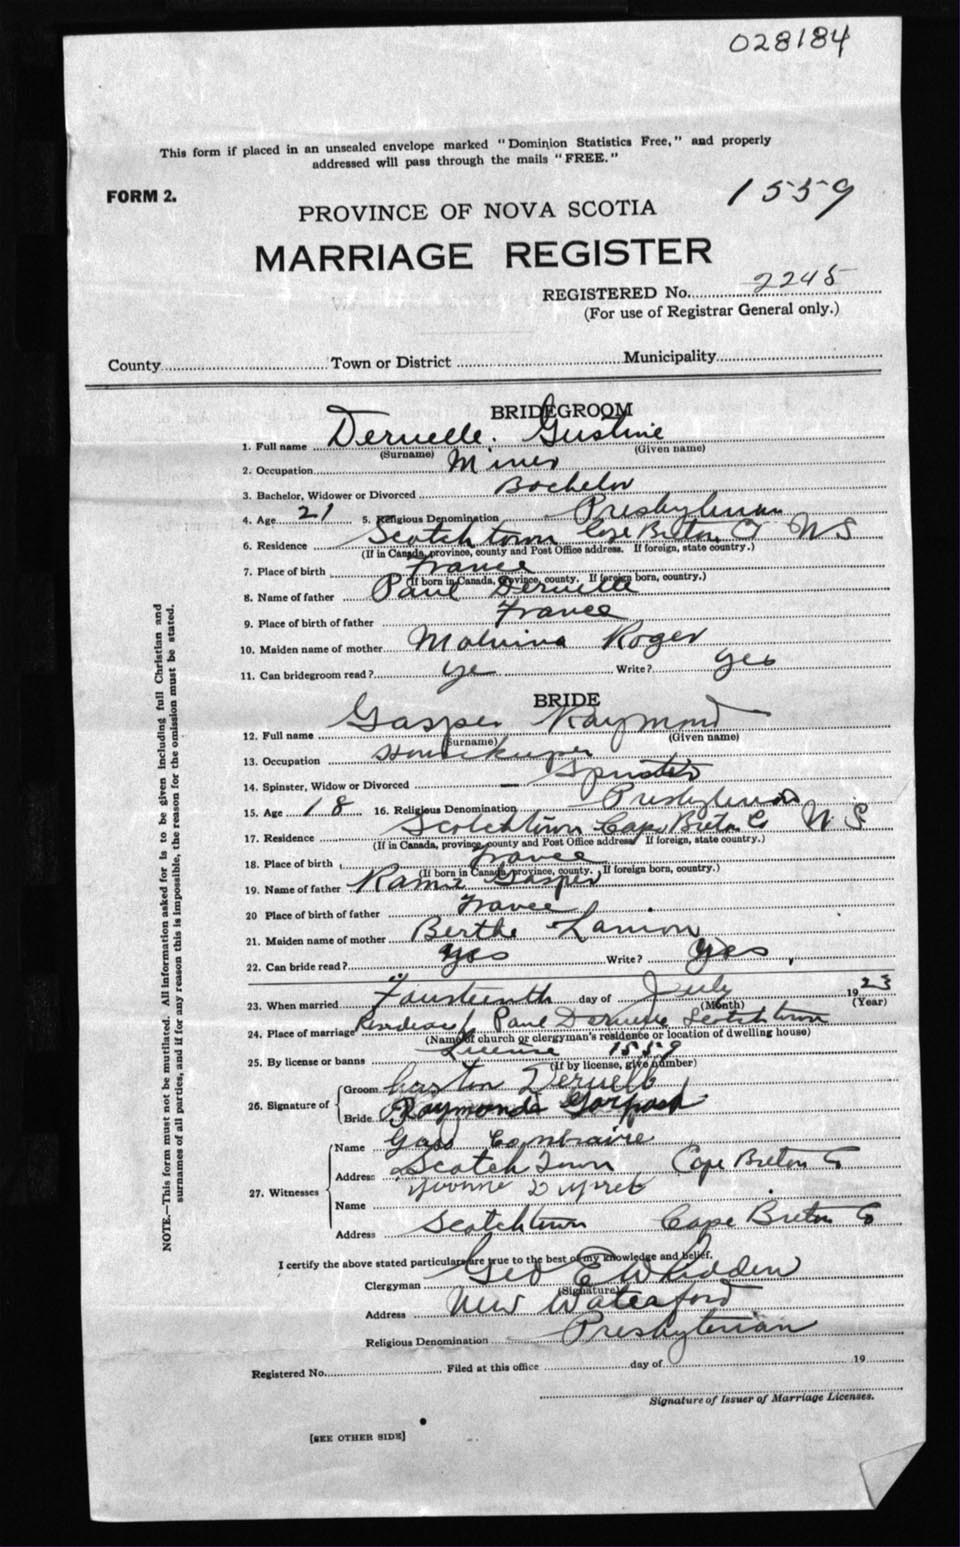 028184
This form if placed in an unsealed envelope marked "Dominion Statistics Free," and properly
addressed will pass through the mails "FREE."
FORM 2.
1559
PROVINCE OF NOVA SCOTIA
MARRIAGE REGISTER
REGISTERED No. 2245
(For use of Registrar General only.)
County Town or District Municipality
BRIDEGROOM
1. Full name Deruelle. Gustine
(Surname) (Given name)
2. Occupation Miner
3. Bachelor, Widower or Divorced Bachelor
4. Age 21 5. Religious Denomination Presbyterian
6. Residence Scotchtown Cape Breton Co N S
(If in Canada, province, county and Post Office address. If foreign, state country.)
7. Place of birth France
(If born in Canada, province, county. If foreign born, country.)
8. Name of father Paul Deruelle
9. Place of birth of father France
10. Maiden name of mother Malvina Roger
11. Can bridegroom read? ye Write? yes
BRIDE
12. Full name Gasper Raymond
(Surname) (Given name)
13. Occupation Housekeeper
14. Spinster, Widow or Divorced Spinster
15. Age 18 16. Religious Denomination Presbyterian
17. Residence Scotchtown Cape Breton C N S
(If in Canada, province, county and Post Office address. If foreign, state country.)
18. Place of birth France
(If born in Canada, province, county. If foreign born, country.)
19. Name of father Gasper
20 Place of birth of father France
21. Maiden name of mother Berthe Lamon
22. Can bride read? yes Write? yes
23. When married Fourteenth day of July 1923
(Month) (Year)
24. Place of marriage Paul Deruelle Scotchtown
(Name of church or clergyman's residence or location of dwelling house)
25. By license or banns License 1559
(If by license, give number)
26. Signature of Groom Gaston Deruelle
Bride Raymonde
27. Witnesses Name
Address Scotch Town Cape Breton Co
Name Yvonne
Address Scotchtown Cape Breton Co
I certify the above stated particulars are true to the best of my knowledge and belief.
Clergyman Geo E Whidden
(Signature)
Address New Waterford
Religious Denomination Presbyterian
Registered No. Filed at this office day of 19
Signature of Issuer of Marriage Licenses.
[SEE OTHER SIDE]
NOTE.—This form must not be mutilated. All information asked for is to be given including full Christian and
surnames of all parties, and if for any reason this is impossible, the reason for the omission must be stated.